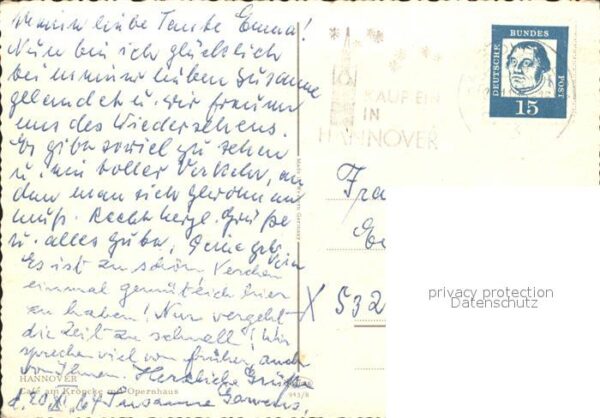 Meine liebe Tante Emma!
Nun bin ich glücklich
bei meinen Lieben
gelandet u. wir freuen
uns des Wiedersehens.
Es gibt soviel zu sehen
u. ein toller Verkehr, an
den man sich gewöhnen
muß. Recht herzl. Grüße
u. alles Gute,
Es ist zu schön
einmal gemütlich hier
zu haben! Nur vergeht
die Zeit zu schnell! Wir
sprechen viel von früher, auch
von Ihnen. Herzliche Grüße
HANNOVER
Café am Kröpcke mit Opernhaus
943/8
KAUF EIN
IN
HANNOVER
DEUTSCHE BUNDESPOST
15
Fra
532
privacy protection
Datenschutz